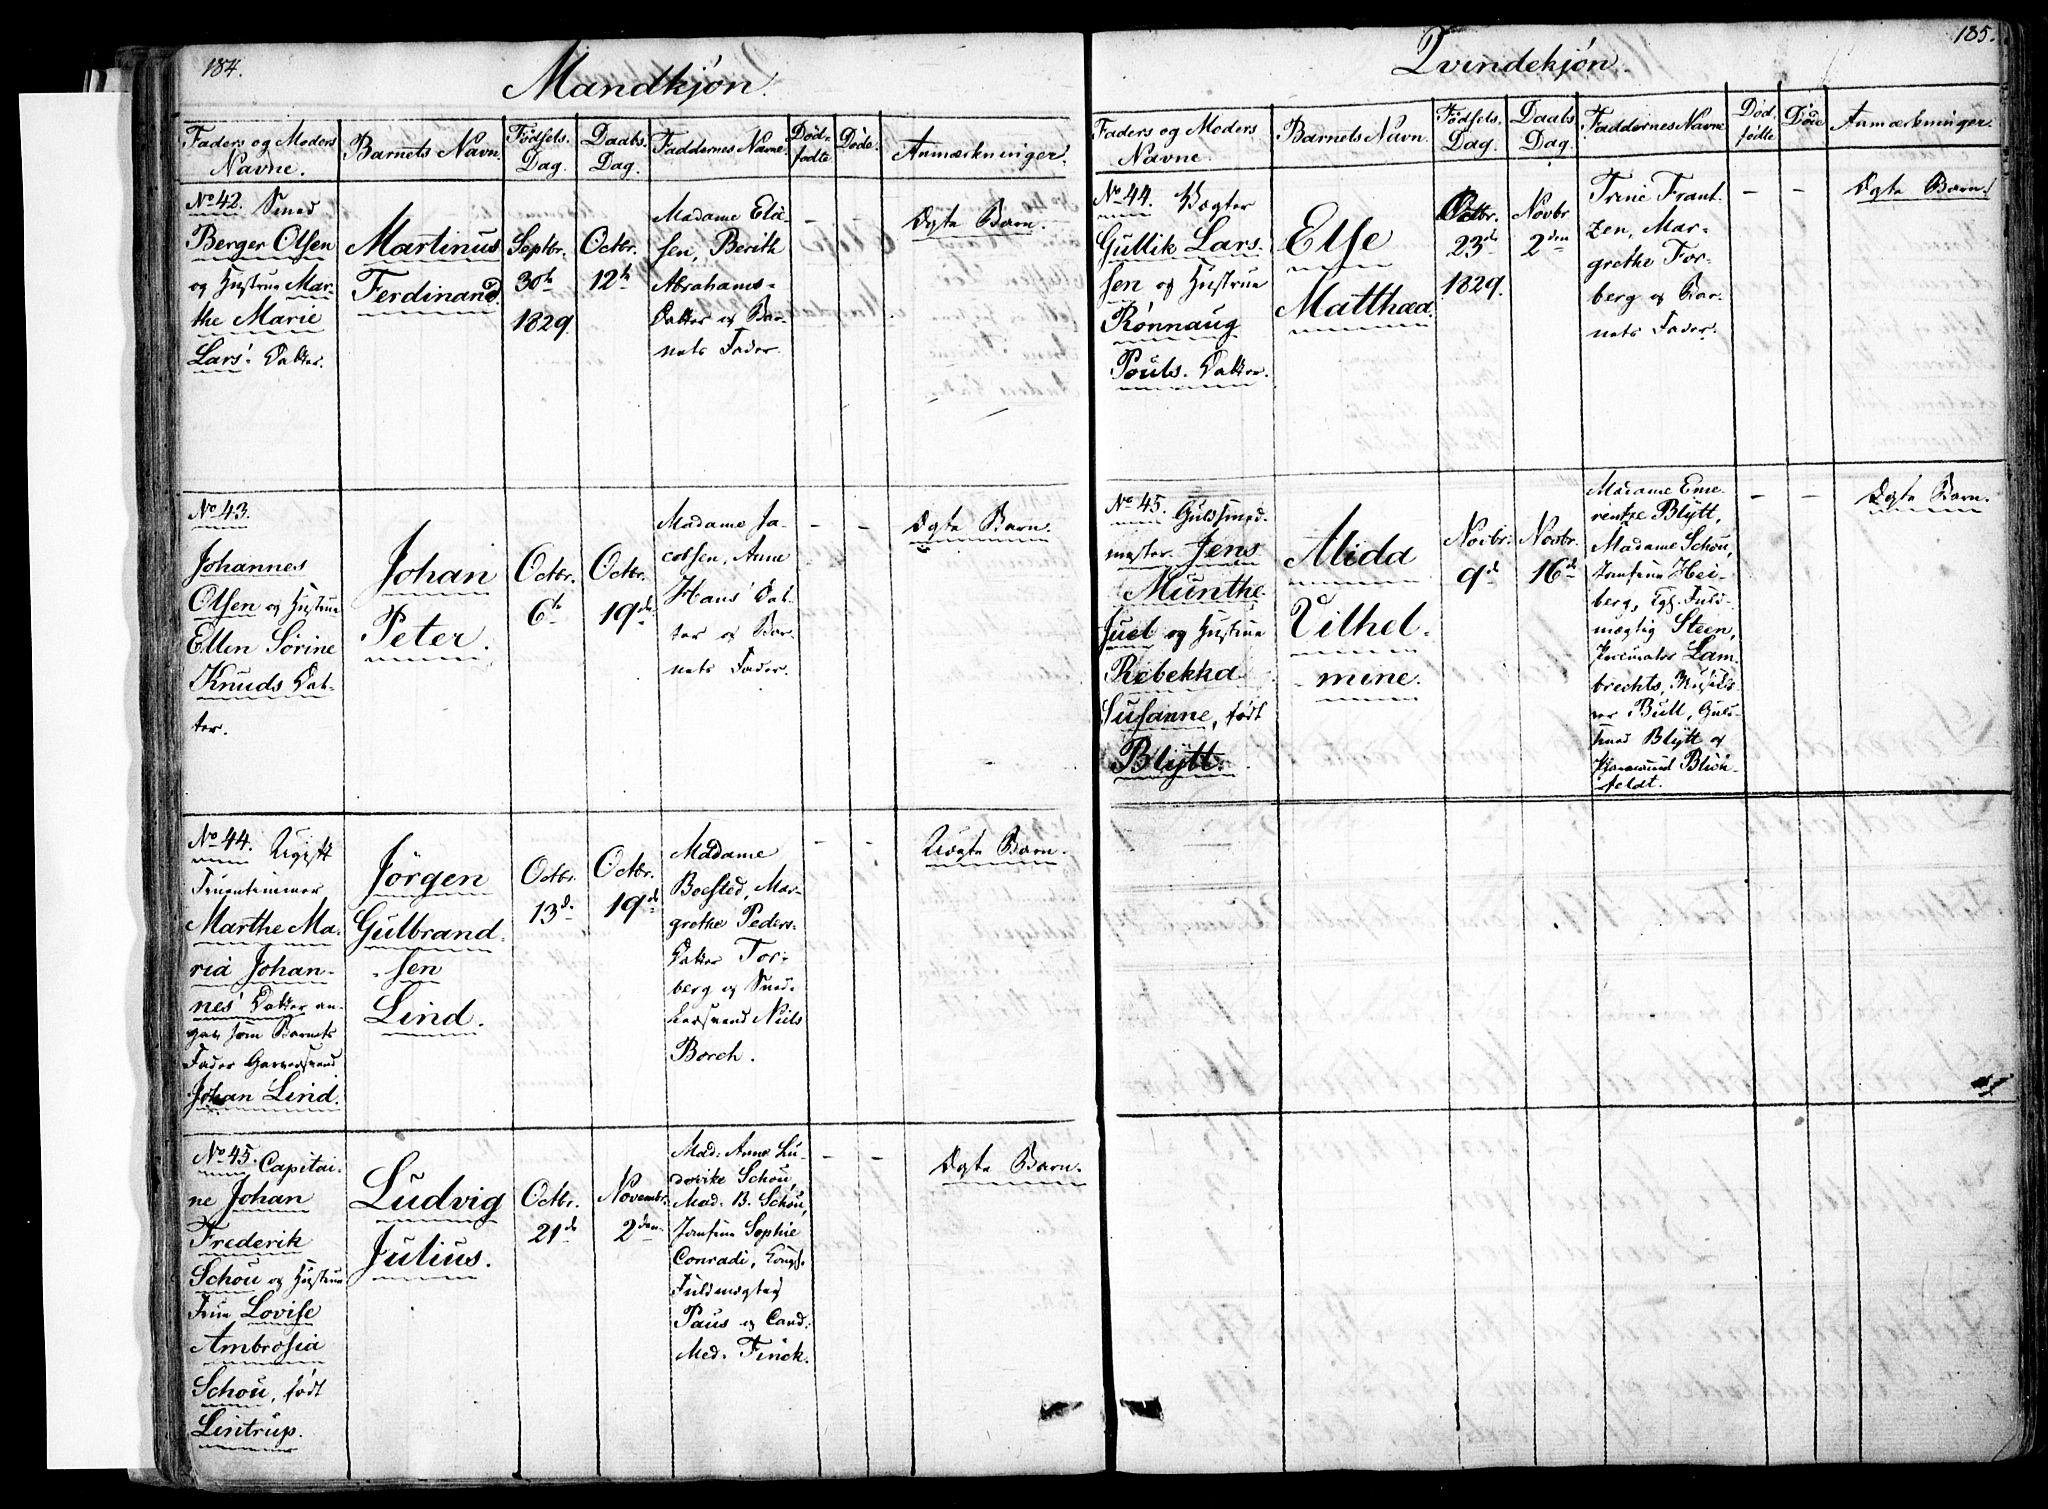 184.
Mandkjøn.
Faders og Moders
Navne.
Barnets Navn.
Fødsels
Dag.
Daabs.
Dag.
Faddernes Navne.
Død-
fødte
Døde.
Anmærkninger.
No 42. Smed
Berger Olsen
og Hustrue Mar-
the Marie
Lars' Datter.
Martinus
Ferdinand.
Septbr.
30te
1829.
Octbr.
12te
Madame Elia-
sen, Berith
Abrahams-
Datter og Bar-
nets Fader.
–
–
Ægte Barn.
No 43.
Johannes
Olsen og Hustrue
Ellen Sørine
Knuds Dat-
ter.
Johan
Peter.
Octbr.
6te
Octbr.
19de
Madame Ja-
cobsen, Anne
Hans' Dat-
ter og Bar-
nets Fader.
–
–
Ægte Barn.
No 44. Ugift
Fruentimmer
Marthe Ma-
ria Johan-
nes' Datter an-
gav som Barnets
Fader Garversvend
Johan Lind.
Jörgen
Gulbrand-
sen
Lind.
Octbr.
13de
Octbr.
19de
Madame
Boested, Mar-
grethe Peders-
Datter Tor-
berg og Sned-
kersvend Niels
Borch.
–
–
Uægte Barn.
No 45. Capitai-
ne Johan
Frederik
Schou og Hustrue
Frue Lovise
Ambrosia
Schou, født
Lintrup.
Ludvig
Julius.
Octbr.
21de
Novembr.
2den
Mad. Anne Lu-
dovike Schou,
Mad. B. Schou,
Jomfrue Sophie
Conradi, Kongl.
Fuldmægtig
Paus og Cand.
Med. Finck.
–
–
Ægte Barn.
185.
Qvindekjøn.
Faders og Moders
Navne.
Barnets Navn.
Fødsels.
Dag.
Daabs
Dag.
Faddernes Navne
Død.
fødte
Døde
Anmærkninger.
No 44. Vægter
Gullik Lars-
sen og Hustrue
Rønnaug
Pouls. Datter.
Else
Matthea.
Octbr.
23de
1829.
Novbr
2den
Trine Frant-
zen, Mar-
grethe For-
berg og Bar-
nets Fader.
–
–
Ægte Barn.
No 45. Guldsmed-
mester Jens
Munthe
Juel og Hustrue
Rebekka
Susanne, født
Blytt.
Alida
Vilhel-
mine.
Novbr.
9de
Novbr.
16de
Madame Eme-
rentze Blytt,
Madame Schou,
Jomfrue Hei-
berg, Fuld-
mægtig Steen,
Lam-
brechts,
Bull, Guld-
smed Blytt og
Blich-
feldt.
–
–
Ægte Barn.